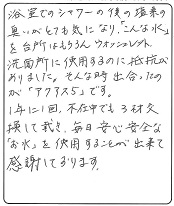 浴室でのシャワーの後の塩素の
臭いがとても気になり、「こんな水」
を台所はもちろん ウォシュレット、
洗面所に使用するのに抵抗が
ありました。そんな時出合ったの
が「アクアス5」です。
1年に1回、不在中でも 3材交
換して載き、毎日安心安全な
「お水」を使用することが出来て
感謝しております。